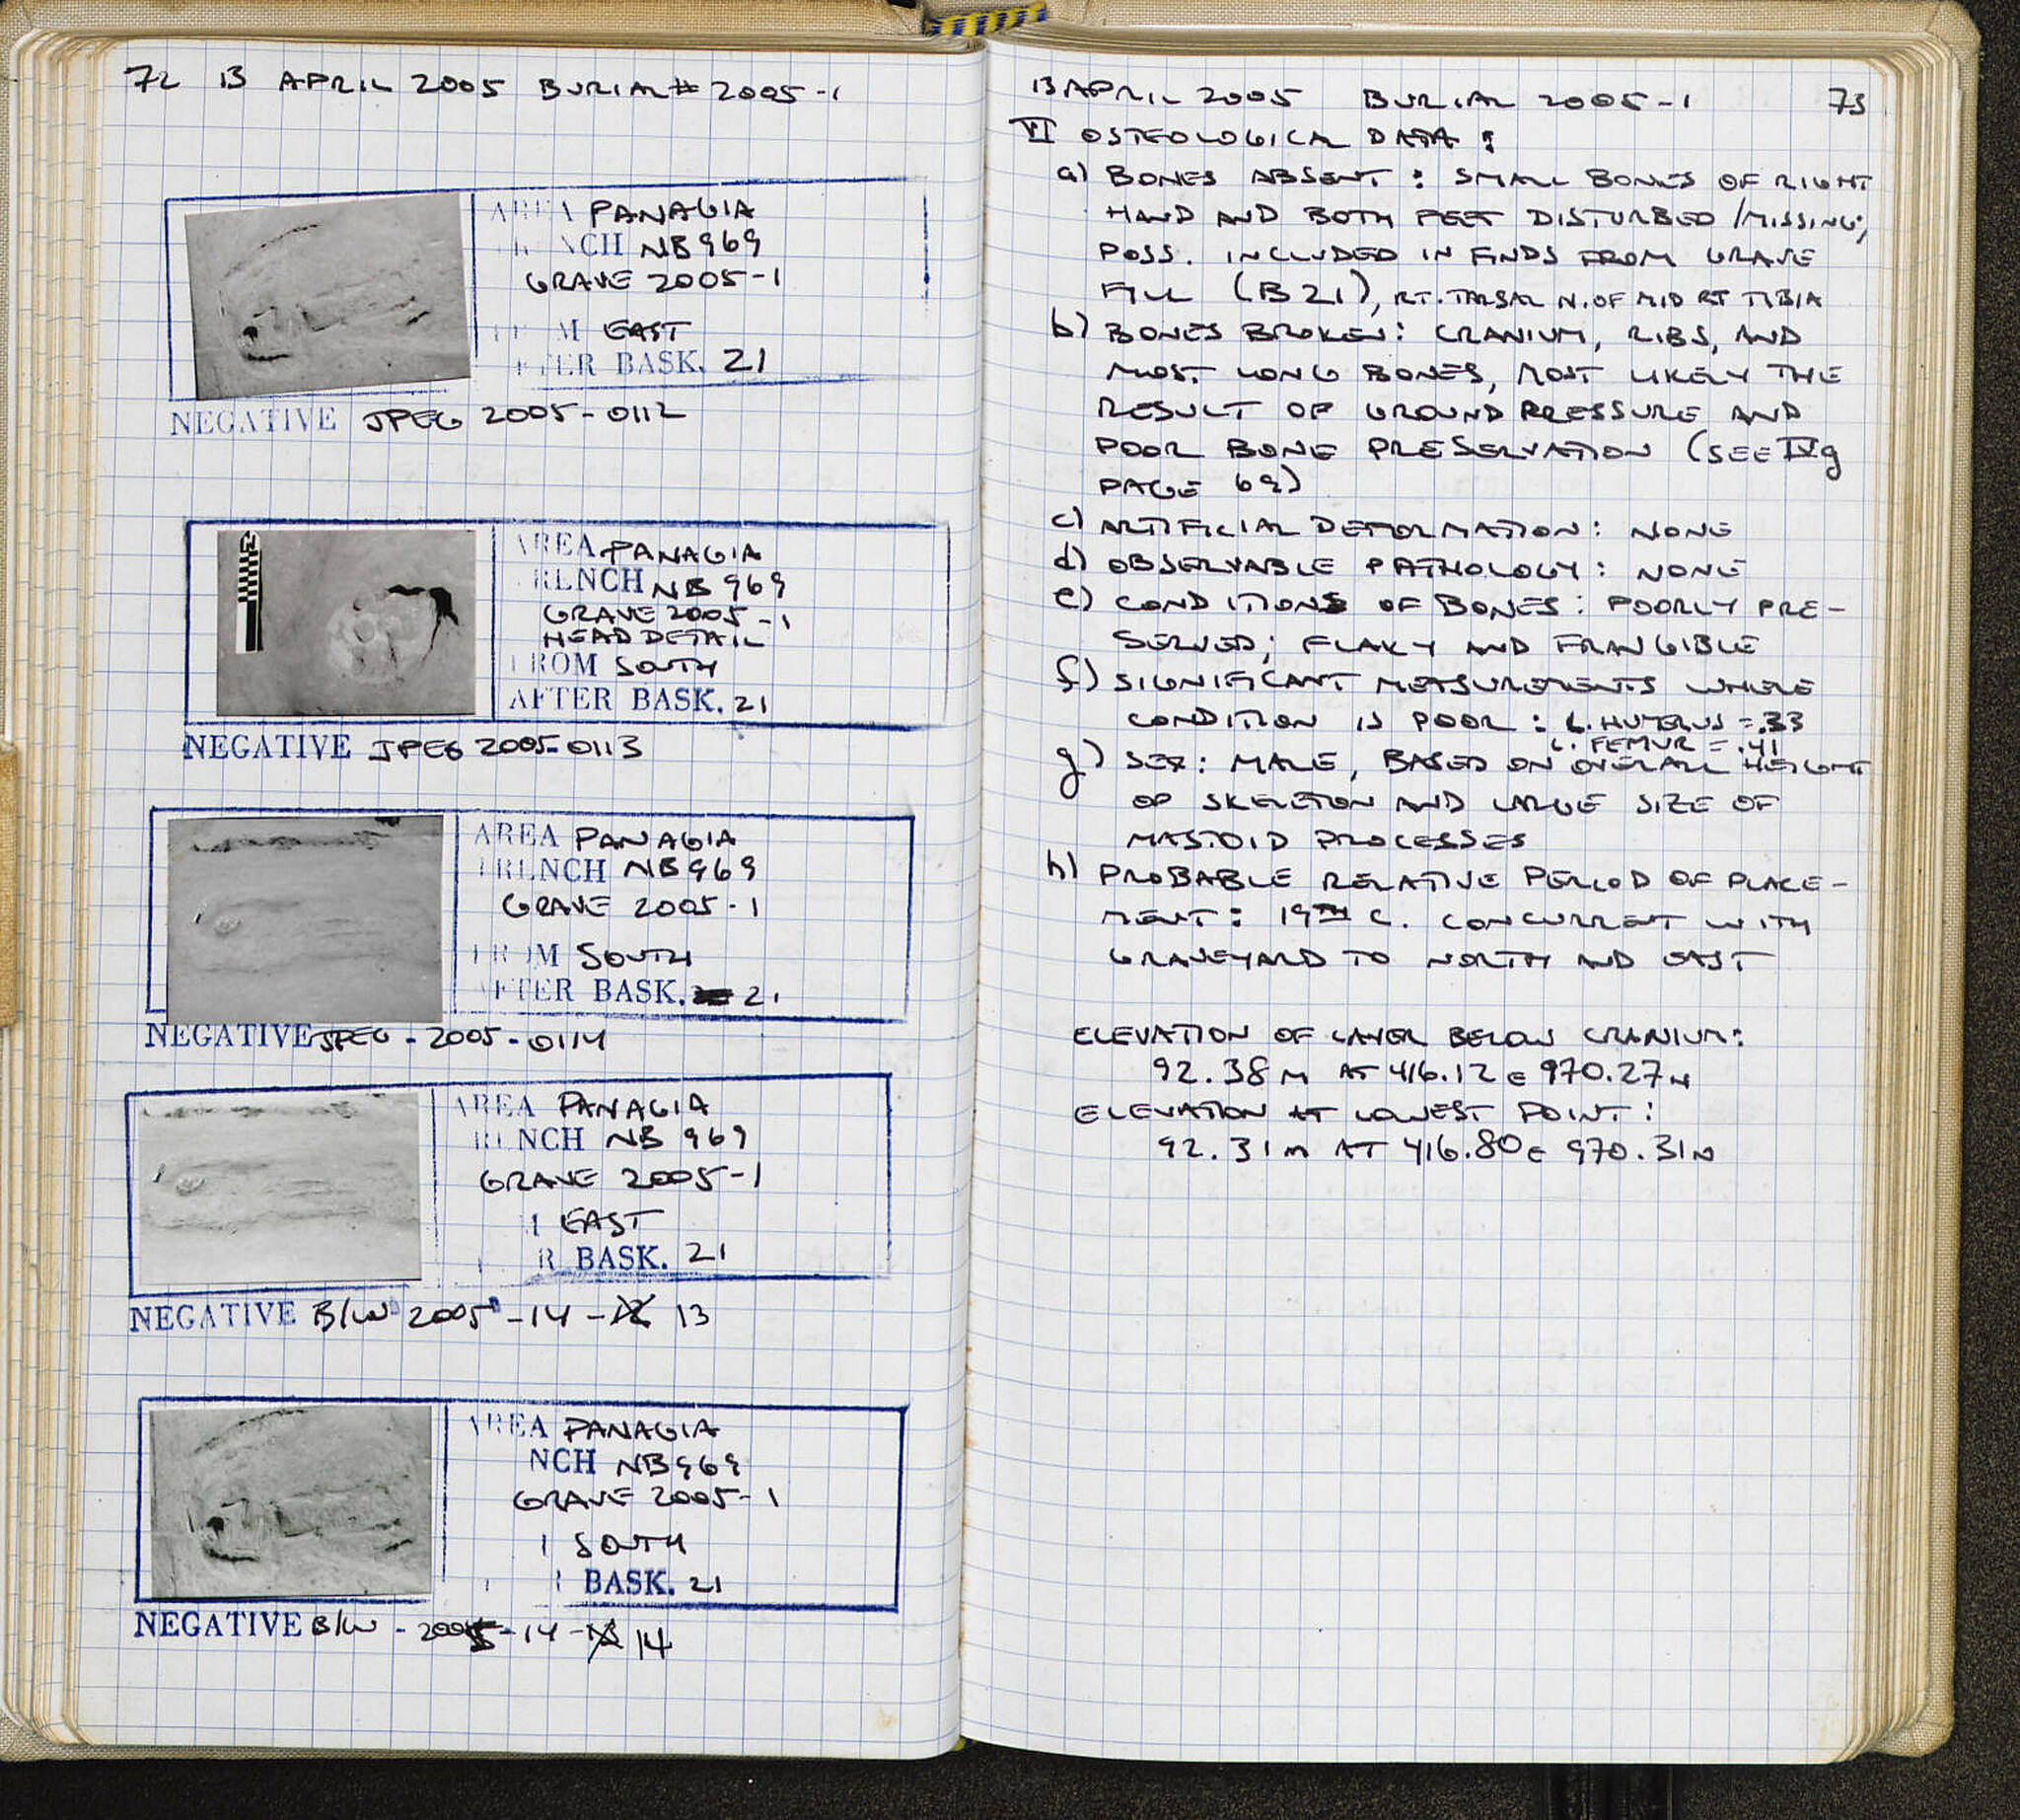 72 13 APRIL 2005 BURIAL # 2005-1
AREA PANAGIA
TRENCH NB969
GRAVE 2005-1
FROM EAST
AFTER BASK. 21
NEGATIVE JPEG 2005-0112
AREA PANAGIA
TRENCH NB969
GRAVE 2005-1
HEAD DETAIL
FROM SOUTH
AFTER BASK. 21
NEGATIVE JPEG 2005-0113
AREA PANAGIA
TRENCH NB969
GRAVE 2005-1
FROM SOUTH
AFTER BASK. 21
NEGATIVE JPEG-2005-0114
AREA PANAGIA
TRENCH NB 969
GRAVE 2005-1
EAST
R BASK. 21
NEGATIVE B/W 2005-14-12 13
AREA PANAGIA
NCH NB969
GRAVE 2005-1
SOUTH
BASK. 21
NEGATIVE B/W-2005-14-13 14
13 APRIL 2005 BURIAL 2005-1 73
VI OSTEOLOGICAL DATA:
a) BONES ABSENT: SMALL BONES OF RIGHT
HAND AND BOTH FEET DISTURBED/MISSING;
POSS. INCLUDED IN FINDS FROM GRAVE
FILL (B21), RT. TARSAL N. OF MID RT TIBIA
b) BONES BROKEN: CRANIUM, RIBS, AND
MOST LONG BONES, MOST LIKELY THE
RESULT OF GROUND PRESSURE AND
POOR BONE PRESERVATION (SEE IVg
PAGE 69)
c) ARTIFICIAL DEFORMATION: NONE
d) OBSERVABLE PATHOLOGY: NONE
e) CONDITIONS OF BONES: POORLY PRE-
SERVED; FLAKY AND FRANGIBLE
f) SIGNIFICANT MEASUREMENTS WHERE
CONDITION IS POOR: L. HUMERUS = .33
L. FEMUR = .41
g) SEX: MALE, BASED ON OVERALL HEIGHT
OF SKELETON AND LARGE SIZE OF
MASTOID PROCESSES
h) PROBABLE RELATIVE PERIOD OF PLACE-
MENT: 19TH C. CONCURRENT WITH
GRAVEYARD TO NORTH AND EAST
ELEVATION OF LAYER BELOW CRANIUM:
92.38 M AT 416.12 E 970.27 N
ELEVATION AT LOWEST POINT:
92.31 M AT 416.80 E 970.31 N